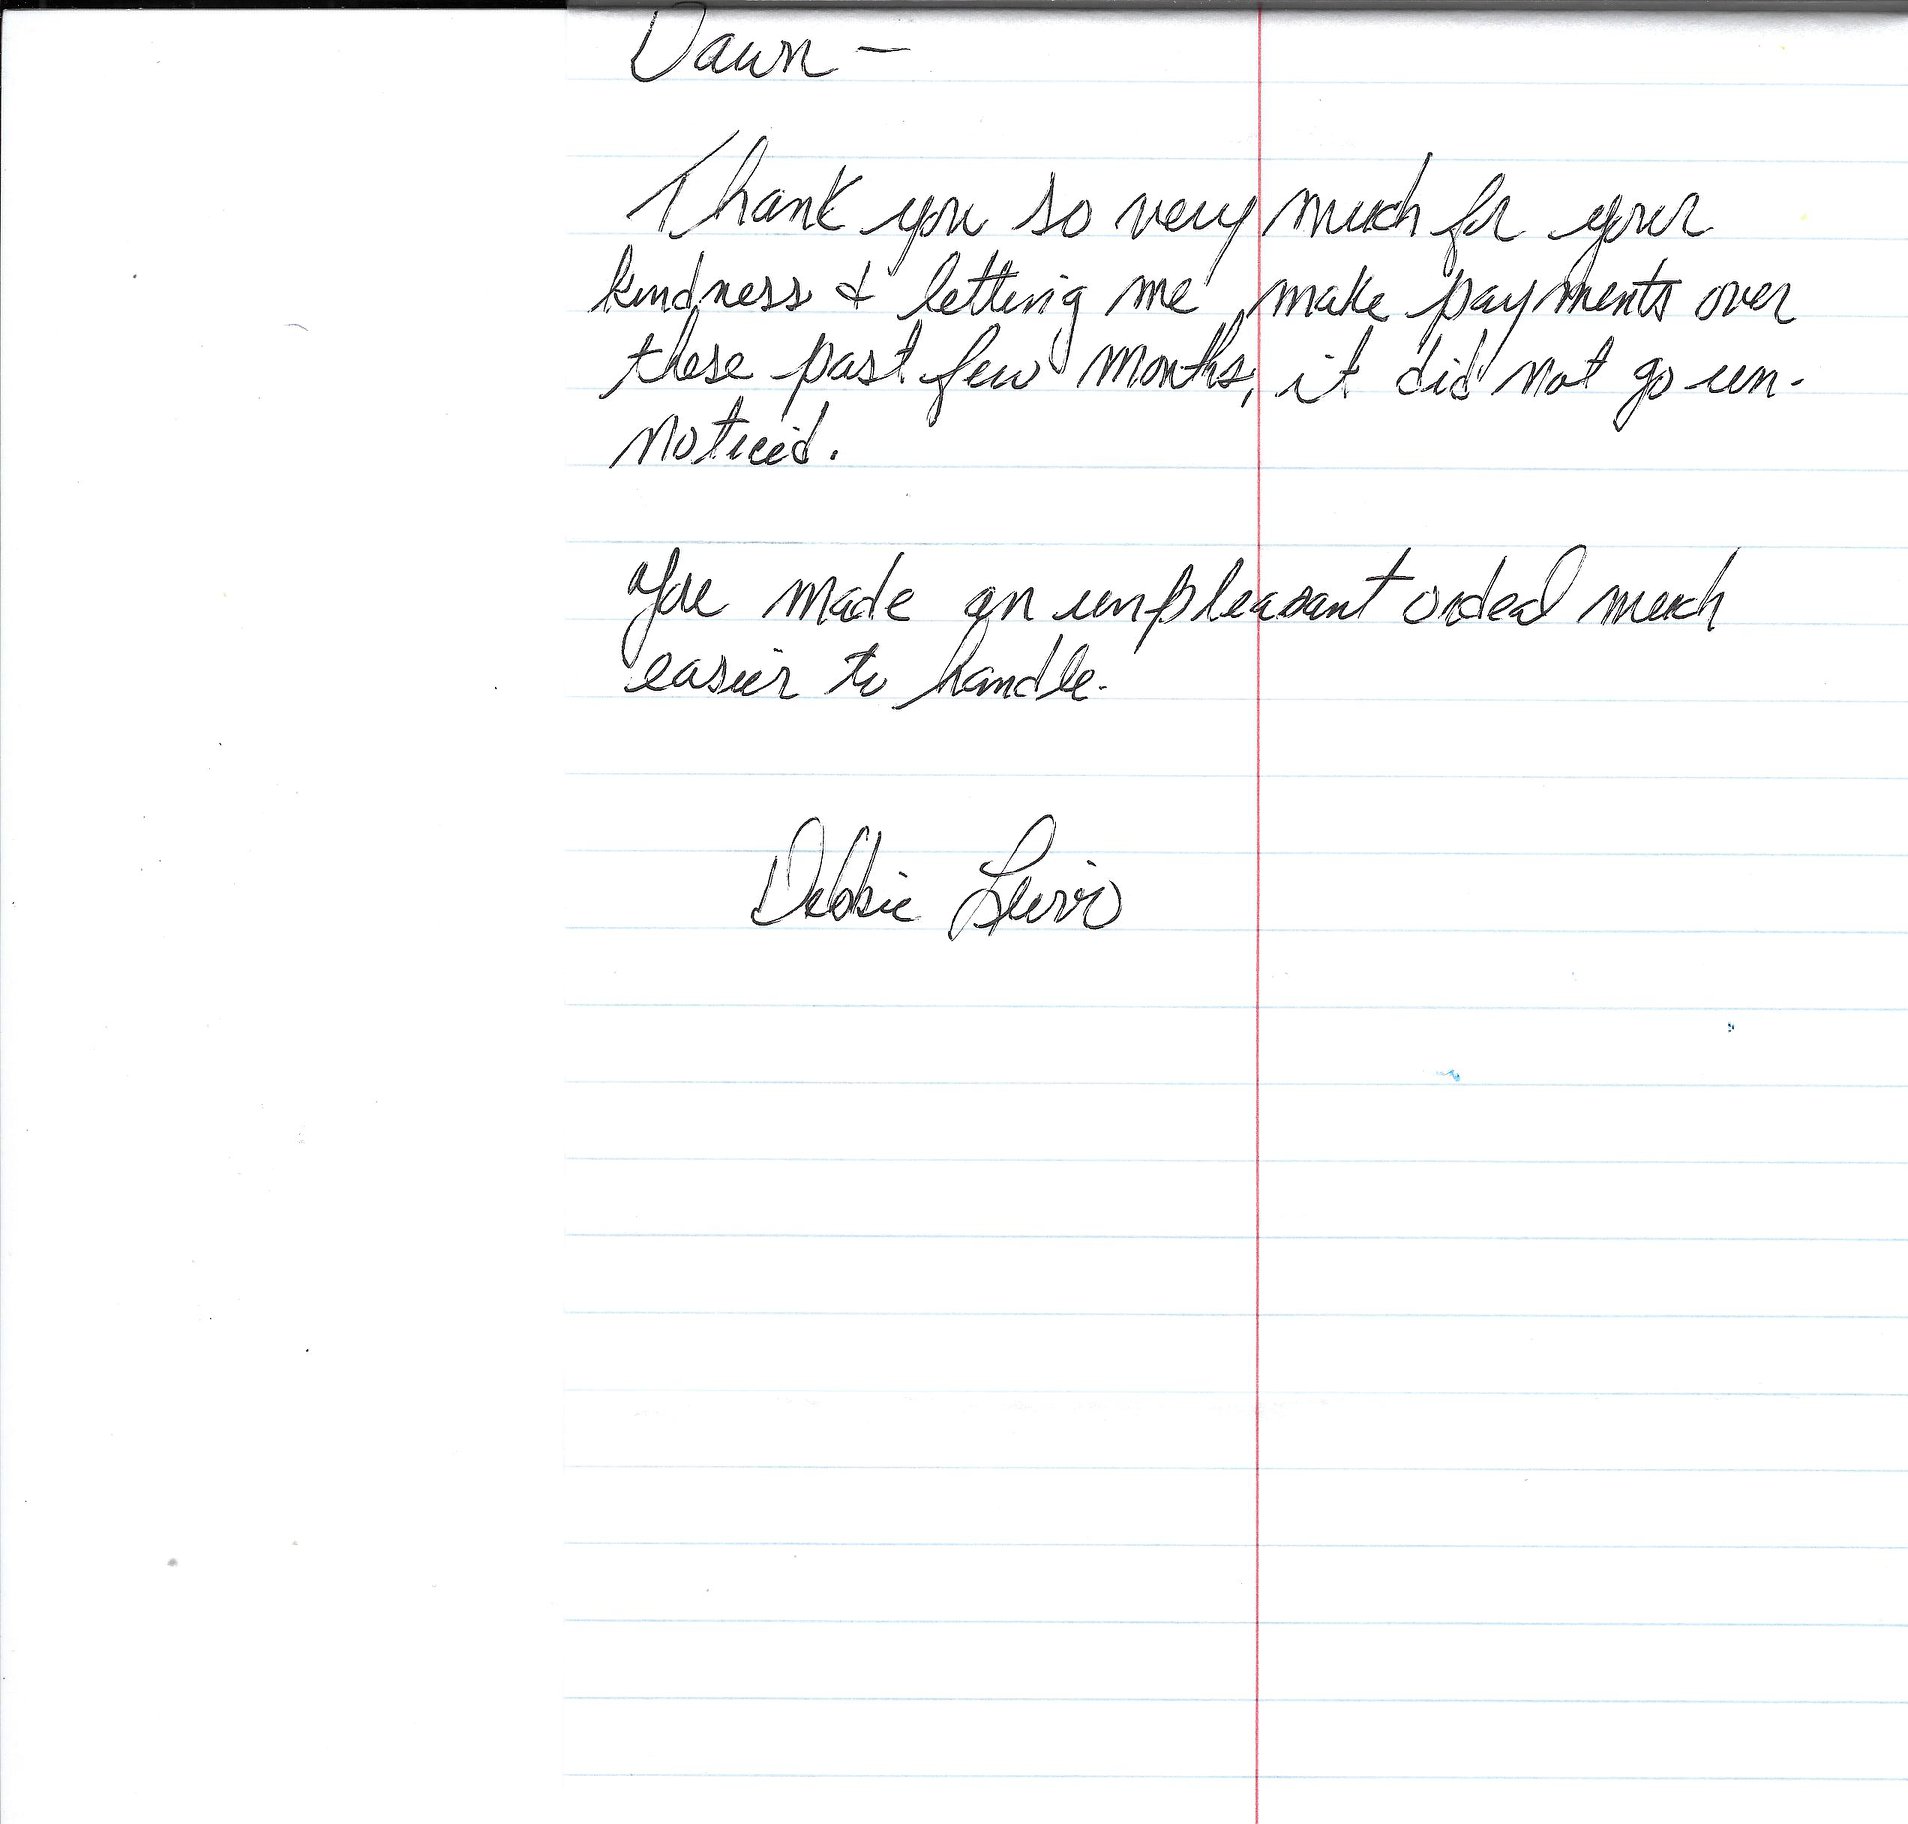 Dawn -
Thank you so very much for your
kindness & letting me make payments over
these past few months, it did not go un-
noticed.
You made an unpleasant ordeal much
easier to handle.
Debbie Lewis